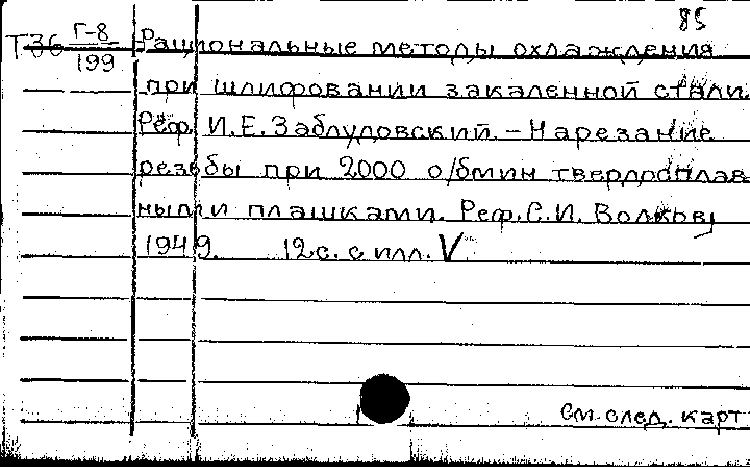 85
Т36 Г-8
199
Рациональные методы охлаждения
при шлифовании закаленной стали.
Реф. И.Е.Заблудовский. – Нарезание
резьбы при 2000 о/бмин твердосплав
ными плашками. Реф. С.И. Волков,
1949. 12 с. с илл. V
См. след. карт